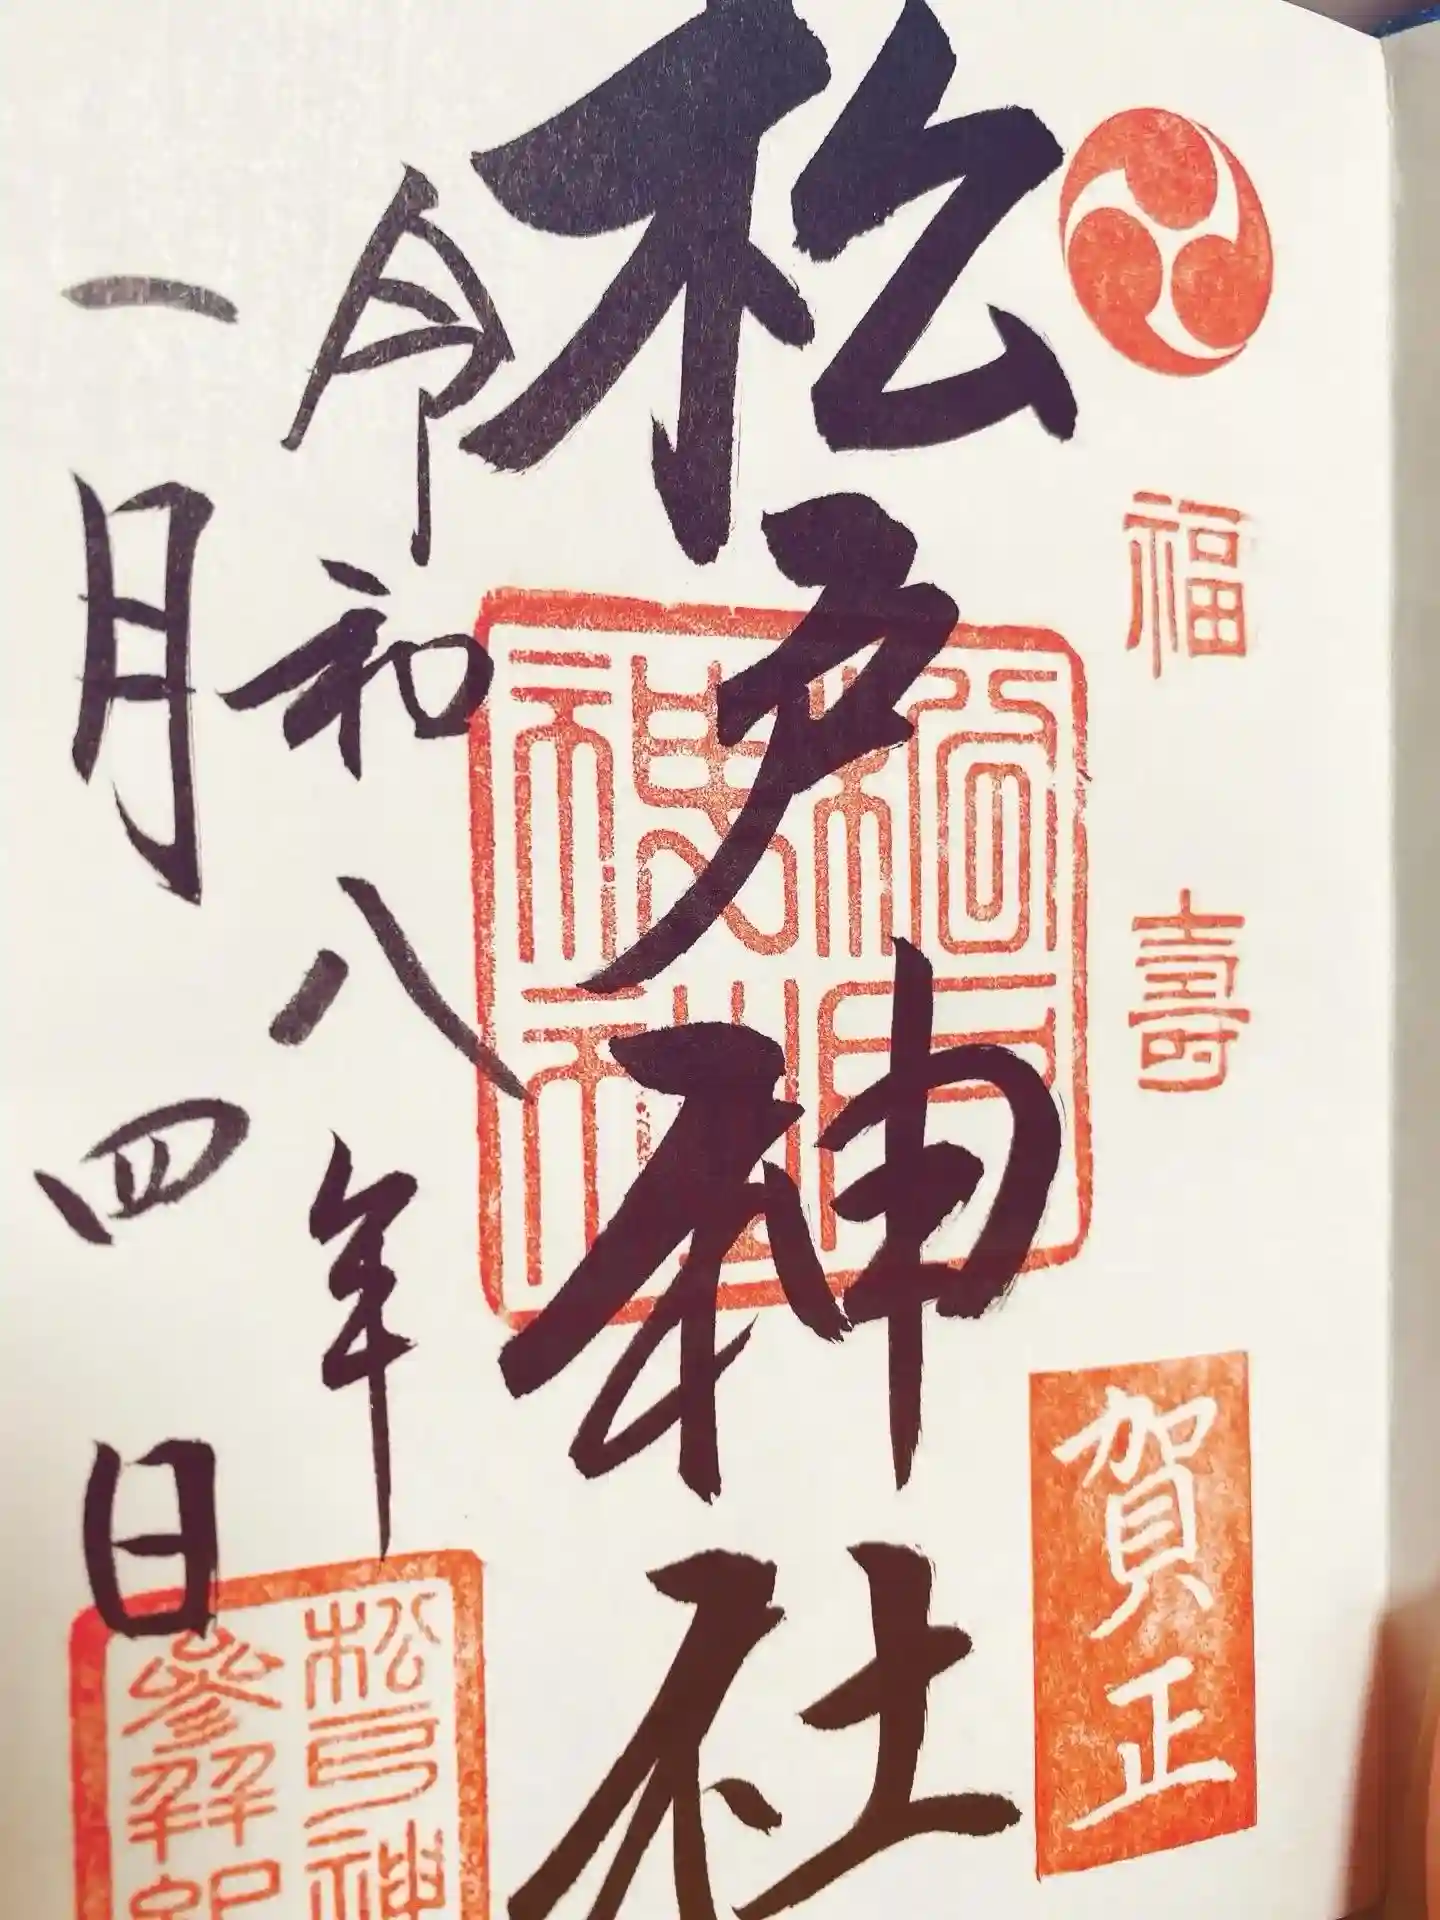 福壽
賀正
松戸神社
松戸神社
令和八年
一月四日
松戸神
參拜記